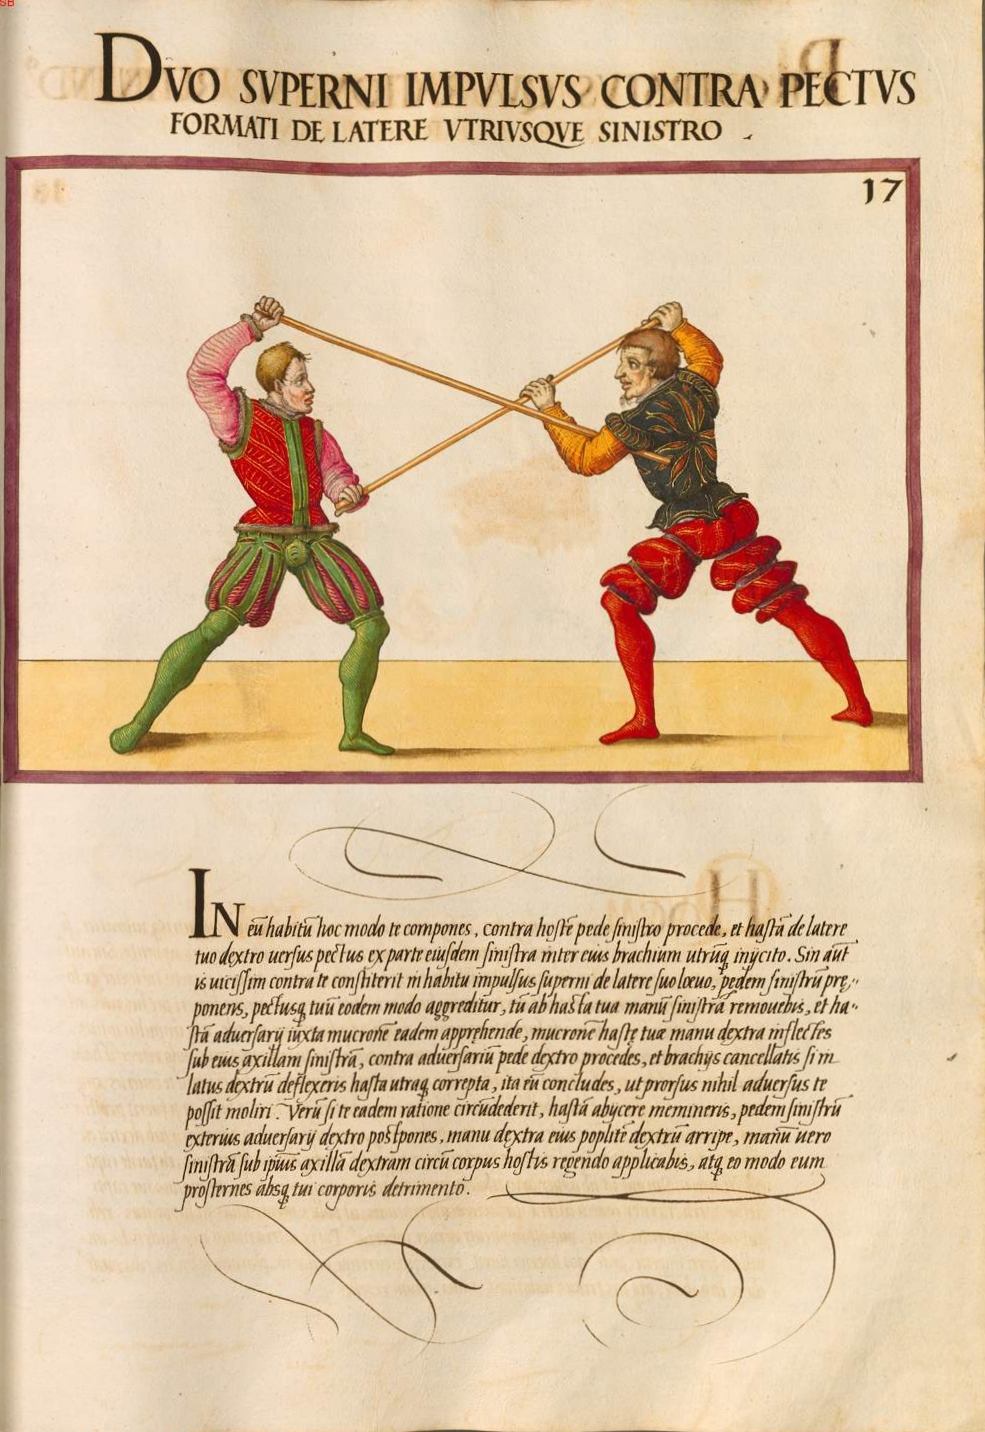 SB
DVO SVPERNI IMPVLSVS CONTRA PECTVS
FORMATI DE LATERE VTRIVSQVE SINISTRO
17
IN eū habitū hoc modo te compones, contra hostē pede sinistro procede, et hastā de latere
tuo dextro uersus pectus ex parte eiusdem sinistra inter eius brachium utrūq inijcito. Sin aūt
is uicissim contra te constiterit in habitu impulsus superni de latere suo lœuo, pedem sinistrū prę-
ponens, pectusq tuū eodem modo aggreditur, tū ab hasta tua manū sinistrā remouebis, et ha-
stā aduersarij iuxta mucronē eadem apprehende, mucronē hastę tuæ manu dextra inflectes
sub eius axillam sinistrā, contra aduersariū pede dextro procedes, et brachijs cancellatis si in
latus dextrū deflexeris hasta utraq correpta, ita eū concludes, ut prorsus nihil aduersus te
possit moliri. Verū si te eadem ratione circūdederit, hastā abijcere memineris, pedem sinistrū
exterius aduersarij dextro postpones, manu dextra eius poplitē dextrū arripe, manū uero
sinistrā sub ipsius axillā dextram circū corpus hostis regendo applicabis, atq eo modo eum
prosternes absq tui corporis detrimento.